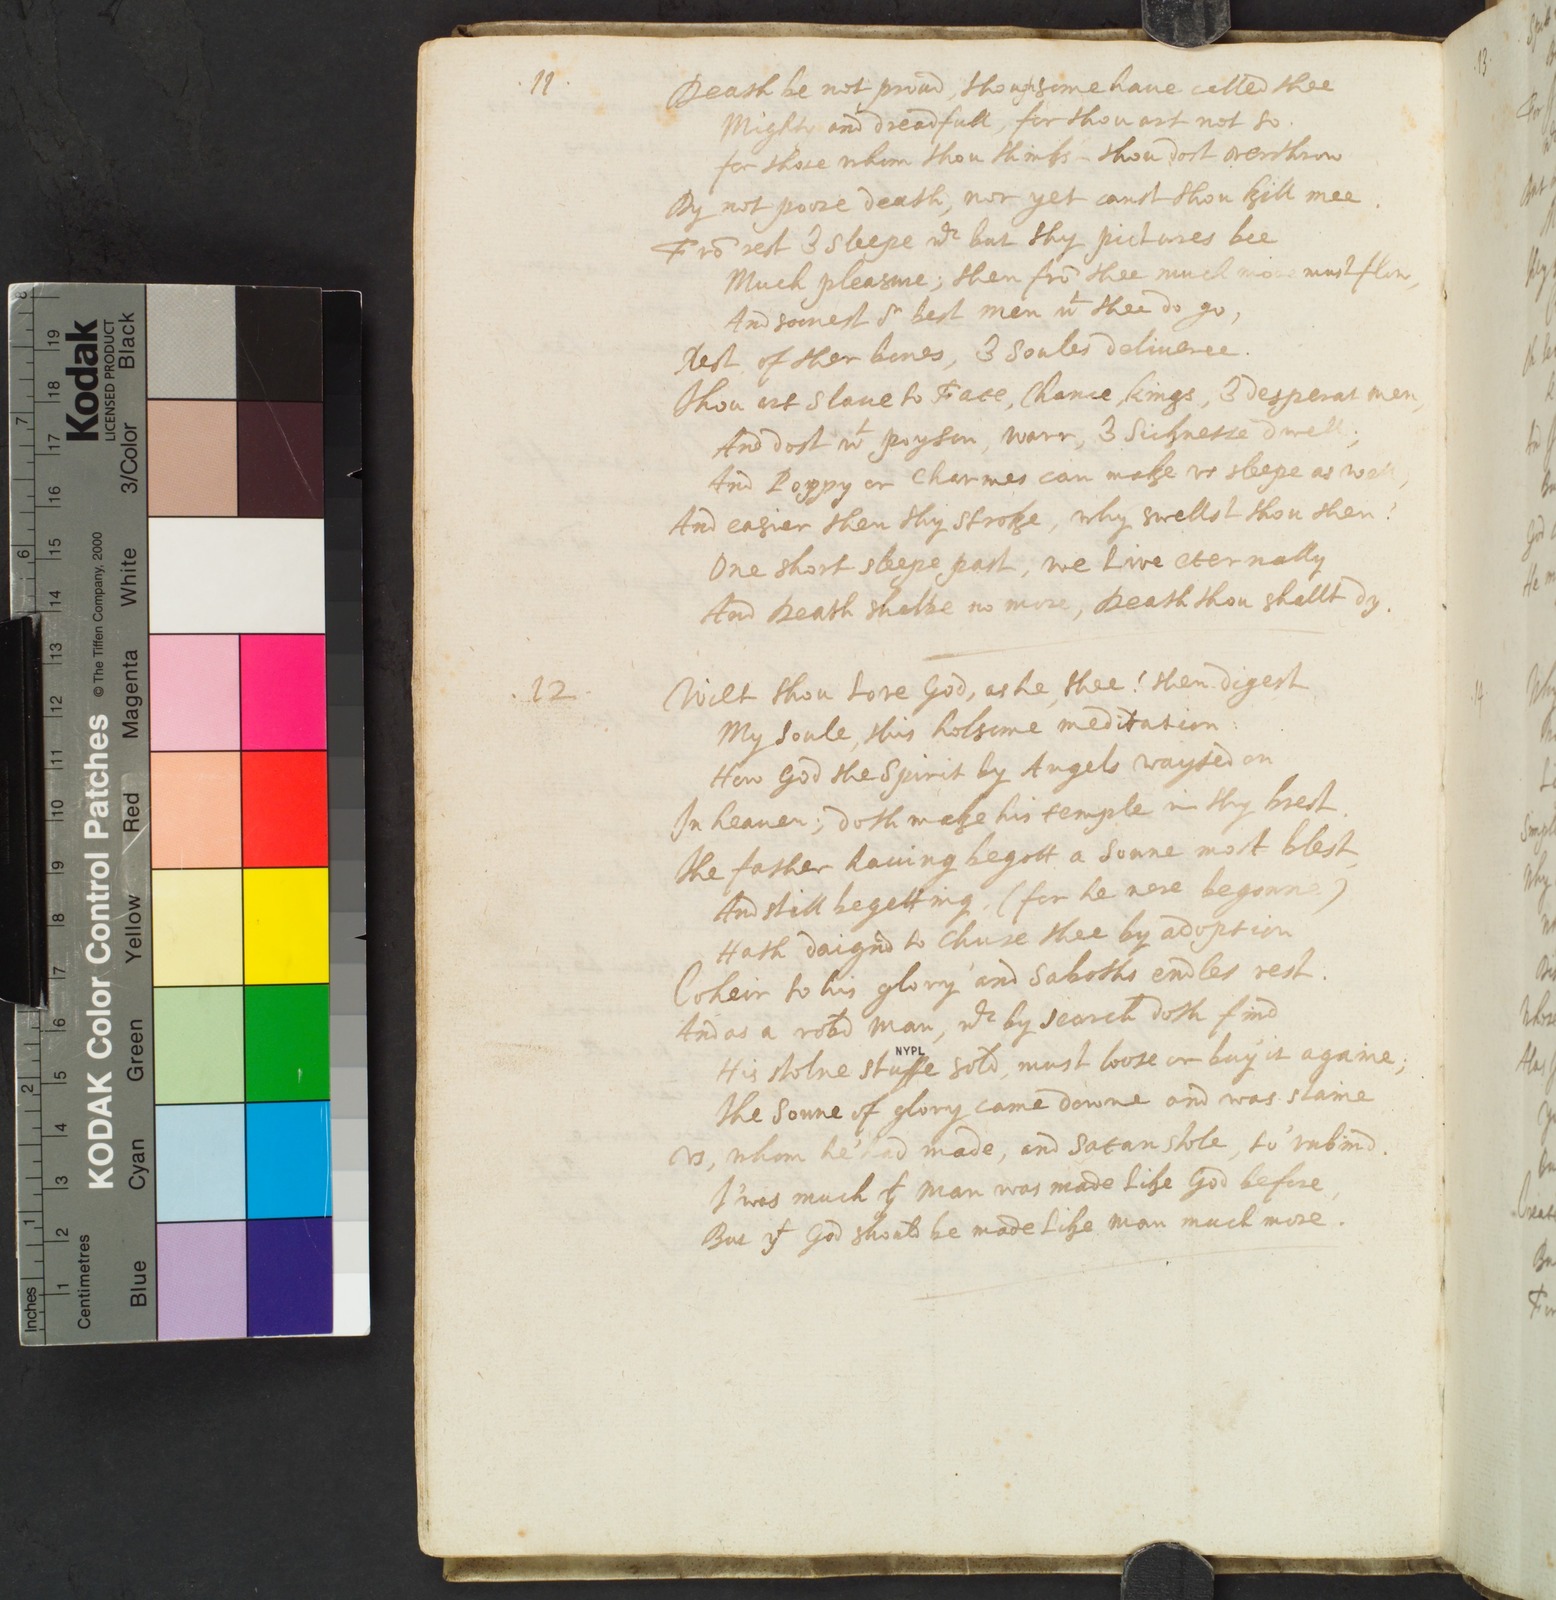 11.
Death be not proud, though some haue called thee
Mighty and dreadfull, for thou art not so.
for those whom thou thinks thou dost overthrow
Dy not poore death, nor yet canst thou kill mee.
Frō rest & sleepe wch but thy pictures bee
Much pleasure; then frō thee much more must flow,
And soonest or best men wt thee do go,
Rest of ther bones, & Soules deliueree.
Thou art slaue to Fate, Chance, kings, & desperat men,
And dost wt poyson, warr, & Sicknesse dwell;
And Poppy or Charmes can make vs sleepe as well,
And easier then thy stroke, why swellst thou then?
One short sleepe past, we Live eternally
And Death shalbe no more, Death thou shallt dy.
.12.
Wilt thou Love God, as he, thee! then digest
My Soule, this holsome meditation:
How God the Spirit by Angels wayted on
In heauen; doth make his temple in thy brest.
The father hauing begott a Sonne most blest,
And still begetting, (for he nere begonne)
Hath daignd to chuse thee by adoption
Coheir to his glory and Saboths endles rest.
And as a robd Man, wch by search doth find
His stolne stuffe sold, must loose or buy it againe;
The Sonne of glory came downe and was slaine
Vs, whom he'had made, and Satan stole, to'vnbind.
T'was much yt Man was made Like God before,
But yt God should be made Like man much more.
NYPL
Kodak
LICENSED PRODUCT
KODAK Color Control Patches
© The Tiffen Company, 2000
Black
3/Color
White
Magenta
Red
Yellow
Green
Cyan
Blue
Centimetres
Inches
1 2 3 4 5 6 7 8 9 10 11 12 13 14 15 16 17 18 19
1 2 6 7 8
13
14